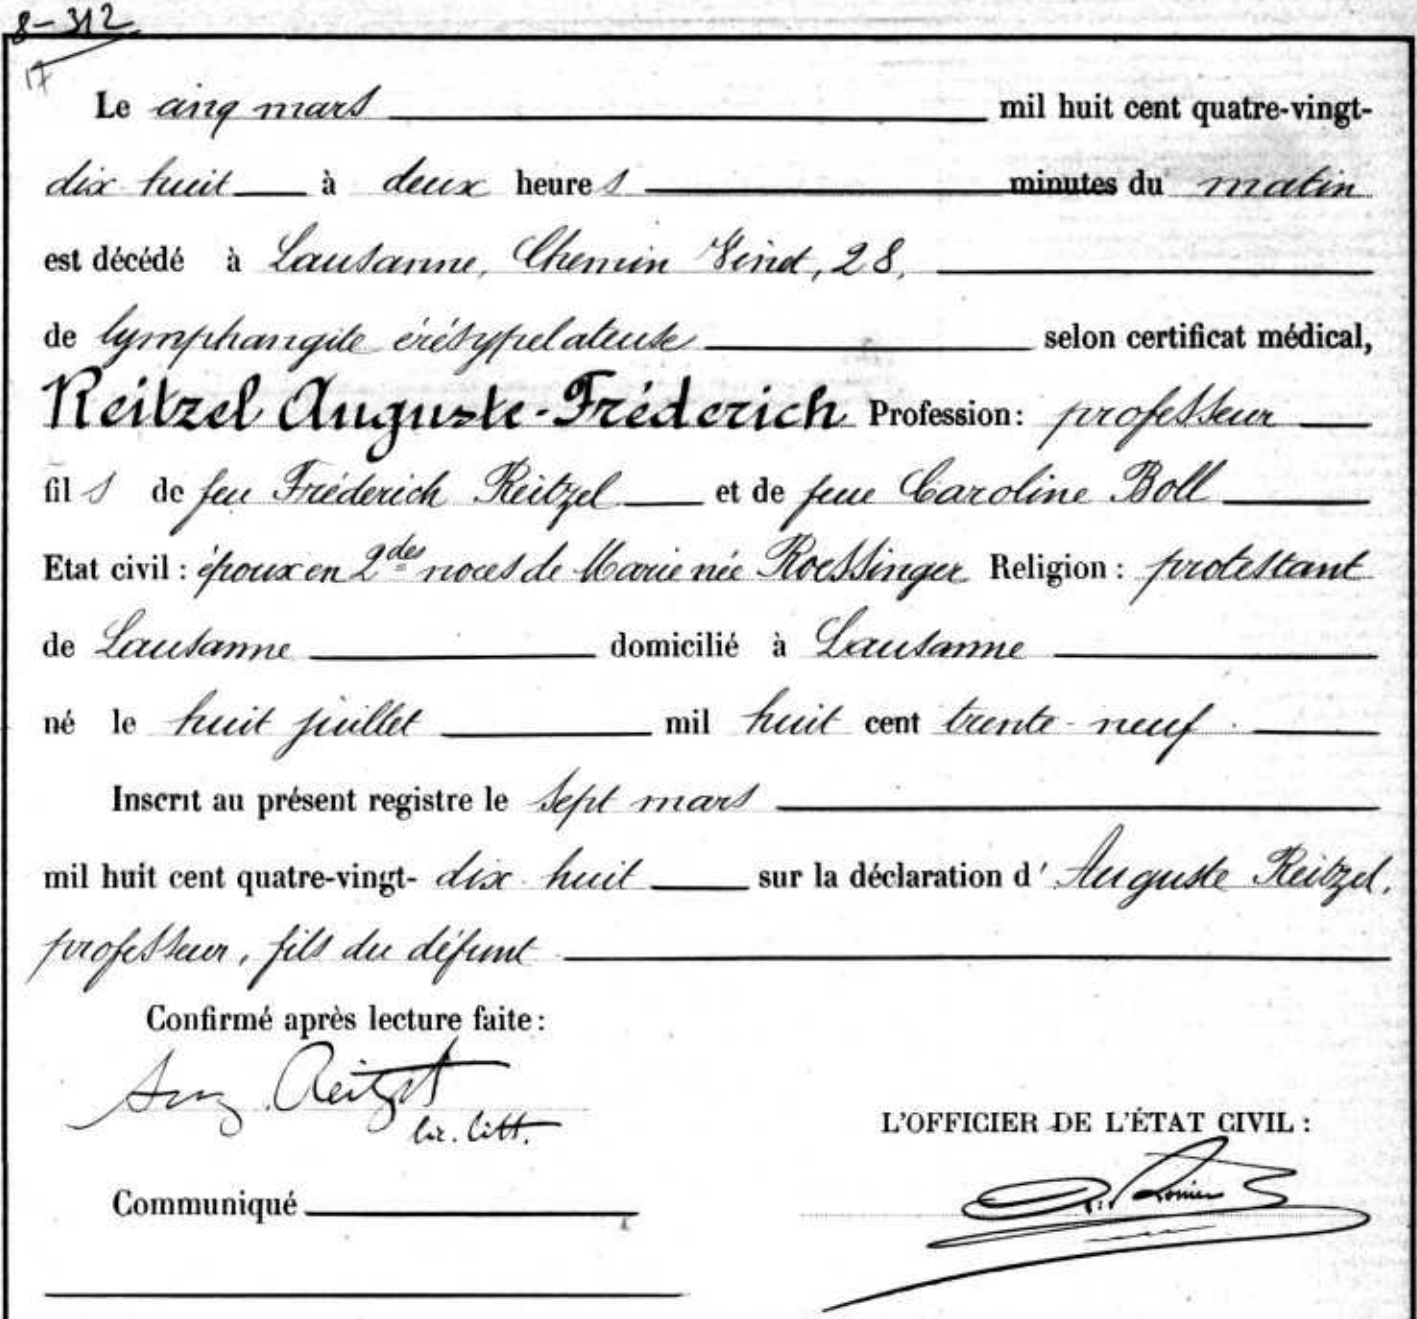 8-312
17
Le cinq mars mil huit cent quatre-vingt-
dix huit à deux heures minutes du matin
est décédé à Lausanne, Chemin Vinet, 28,
de lymphangite érésypelateuse selon certificat médical,
Reitzel Auguste-Fréderich Profession: professeur
fils de feu Fréderich Reitzel et de feue Caroline Boll
Etat civil : époux en 2des noces de Marie née Roessinger Religion : protestant
de Lausanne domicilié à Lausanne
né le huit juillet mil huit cent trente-neuf
Inscrit au présent registre le sept mars
mil huit cent quatre-vingt- dix huit sur la déclaration d' Auguste Reitzel,
professeur, fils du défunt
Confirmé après lecture faite :
Aug. Reitzel
lic. litt.
L'OFFICIER DE L'ÉTAT CIVIL :
Communiqué